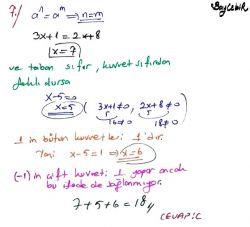 BoyCebir
7.) aⁿ = aᵐ ⇒ n=m
3x+1 = 2x+8
x=7
ve taban sıfır, kuvvet sıfırdan
farklı dursa
x-5=0
x=5 (3x+1≠0, 2x+8≠0)
5 5
16≠0 18≠0
1 in bütün kuvvetleri 1'dir.
Yani x-5=1 ⇒ x=6
(-1) in çift kuvveti 1 yapar ancak
bu ifade de sağlanmıyor.
7+5+6=18,,
CEVAP: C